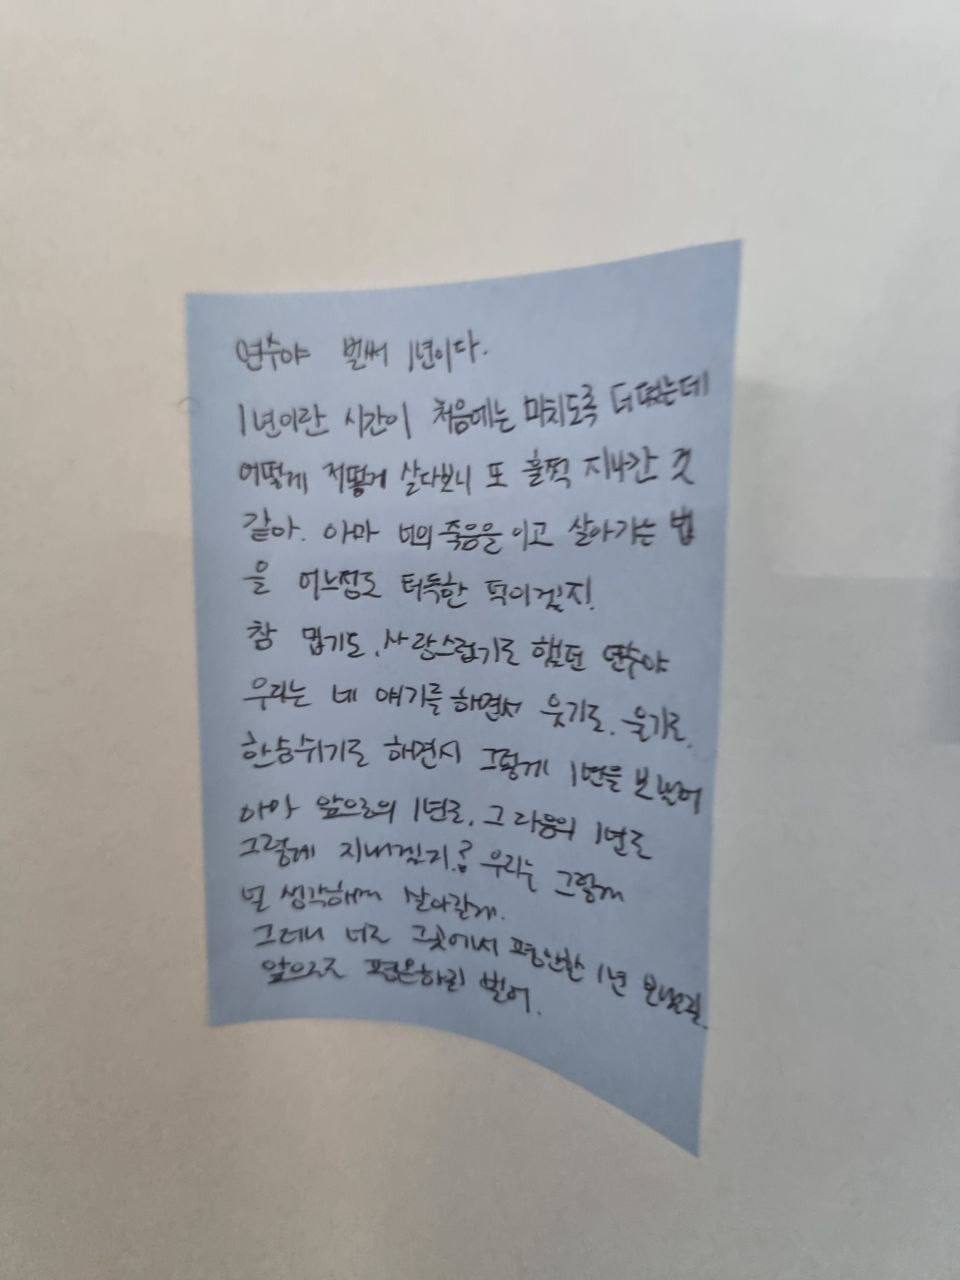 연수야 벌써 1년이다.
1년이란 시간이 처음에는 미치도록 더뎠는데
어떻게 저떻게 살다보니 또 훌쩍 지나간 것
같아. 아마 너의 죽음을 이고 살아가는 법
을 어느정도 터득한 덕이겠지!
참 밉기도, 사랑스럽기도 했던 연수야
우리는 네 얘기를 하면서 웃기도, 울기도,
한숨쉬기도 하면서 그렇게 1년을 보냈어
아마 앞으로의 1년도, 그 다음의 1년도
그렇게 지내겠지? 우리는 그렇게
널 생각하며 살아갈게.
그러니 너도 그곳에서 편안한 1년 보냈길.
앞으로도 평온하길 빌어.